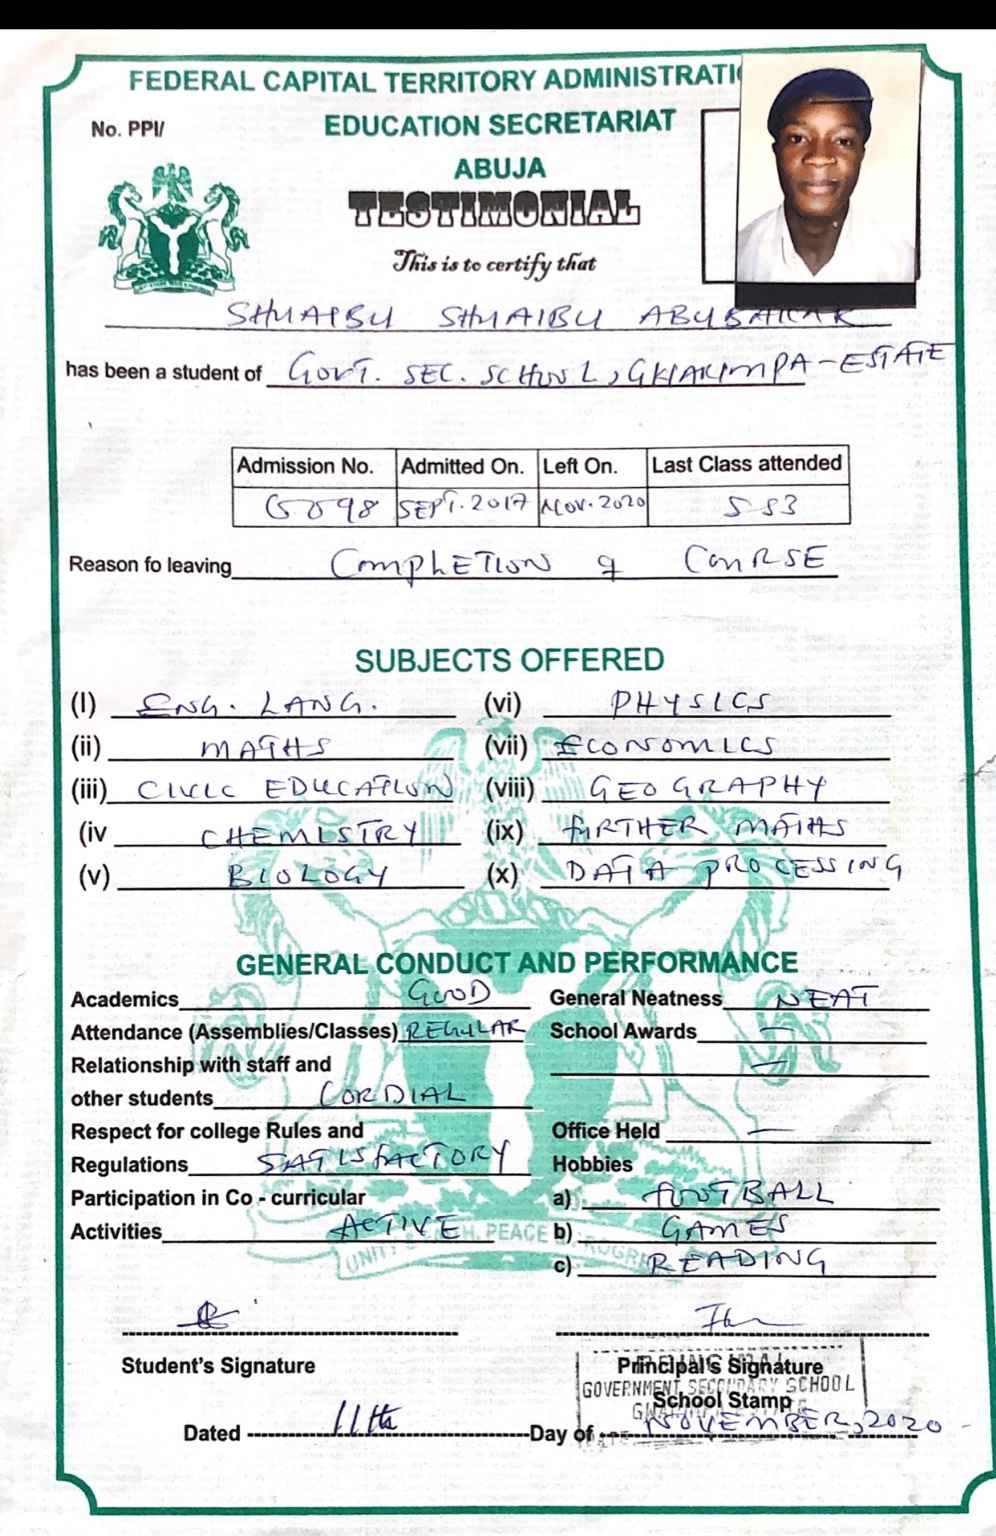 FEDERAL CAPITAL TERRITORY ADMINISTRATI
No. PPI/
EDUCATION SECRETARIAT
ABUJA
TESTIMONIAL
This is to certify that
SHUAIBU SHUAIBU ABUBAKAR
has been a student of GOVT. SEC. SCHOOL, GWARIMPA-ESTATE
Admission No. Admitted On. Left On. Last Class attended
SEPT. 2017 NOV. 2020 SS3
Reason fo leaving COMPLETION OF COURSE
SUBJECTS OFFERED
(I) ENG. LANG. (vi) PHYSICS
(ii) MATHS (vii) ECONOMICS
(iii) CIVIC EDUCATION (viii) GEOGRAPHY
(iv CHEMISTRY (ix) FURTHER MATHS
(v) BIOLOGY (x) DATA PROCESSING
GENERAL CONDUCT AND PERFORMANCE
Academics GOOD General Neatness NEAT
Attendance (Assemblies/Classes) REGULAR School Awards —
Relationship with staff and —
other students CORDIAL
Respect for college Rules and Office Held —
Regulations SATISFACTORY Hobbies
Participation in Co - curricular a) FOOTBALL
Activities ACTIVE b) GAMES
c) READING
UNITY PEACE
Student's Signature Principal's Signature
GOVERNMENT SECONDARY SCHOOL
School Stamp
Dated 11th Day of NOVEMBER, 2020